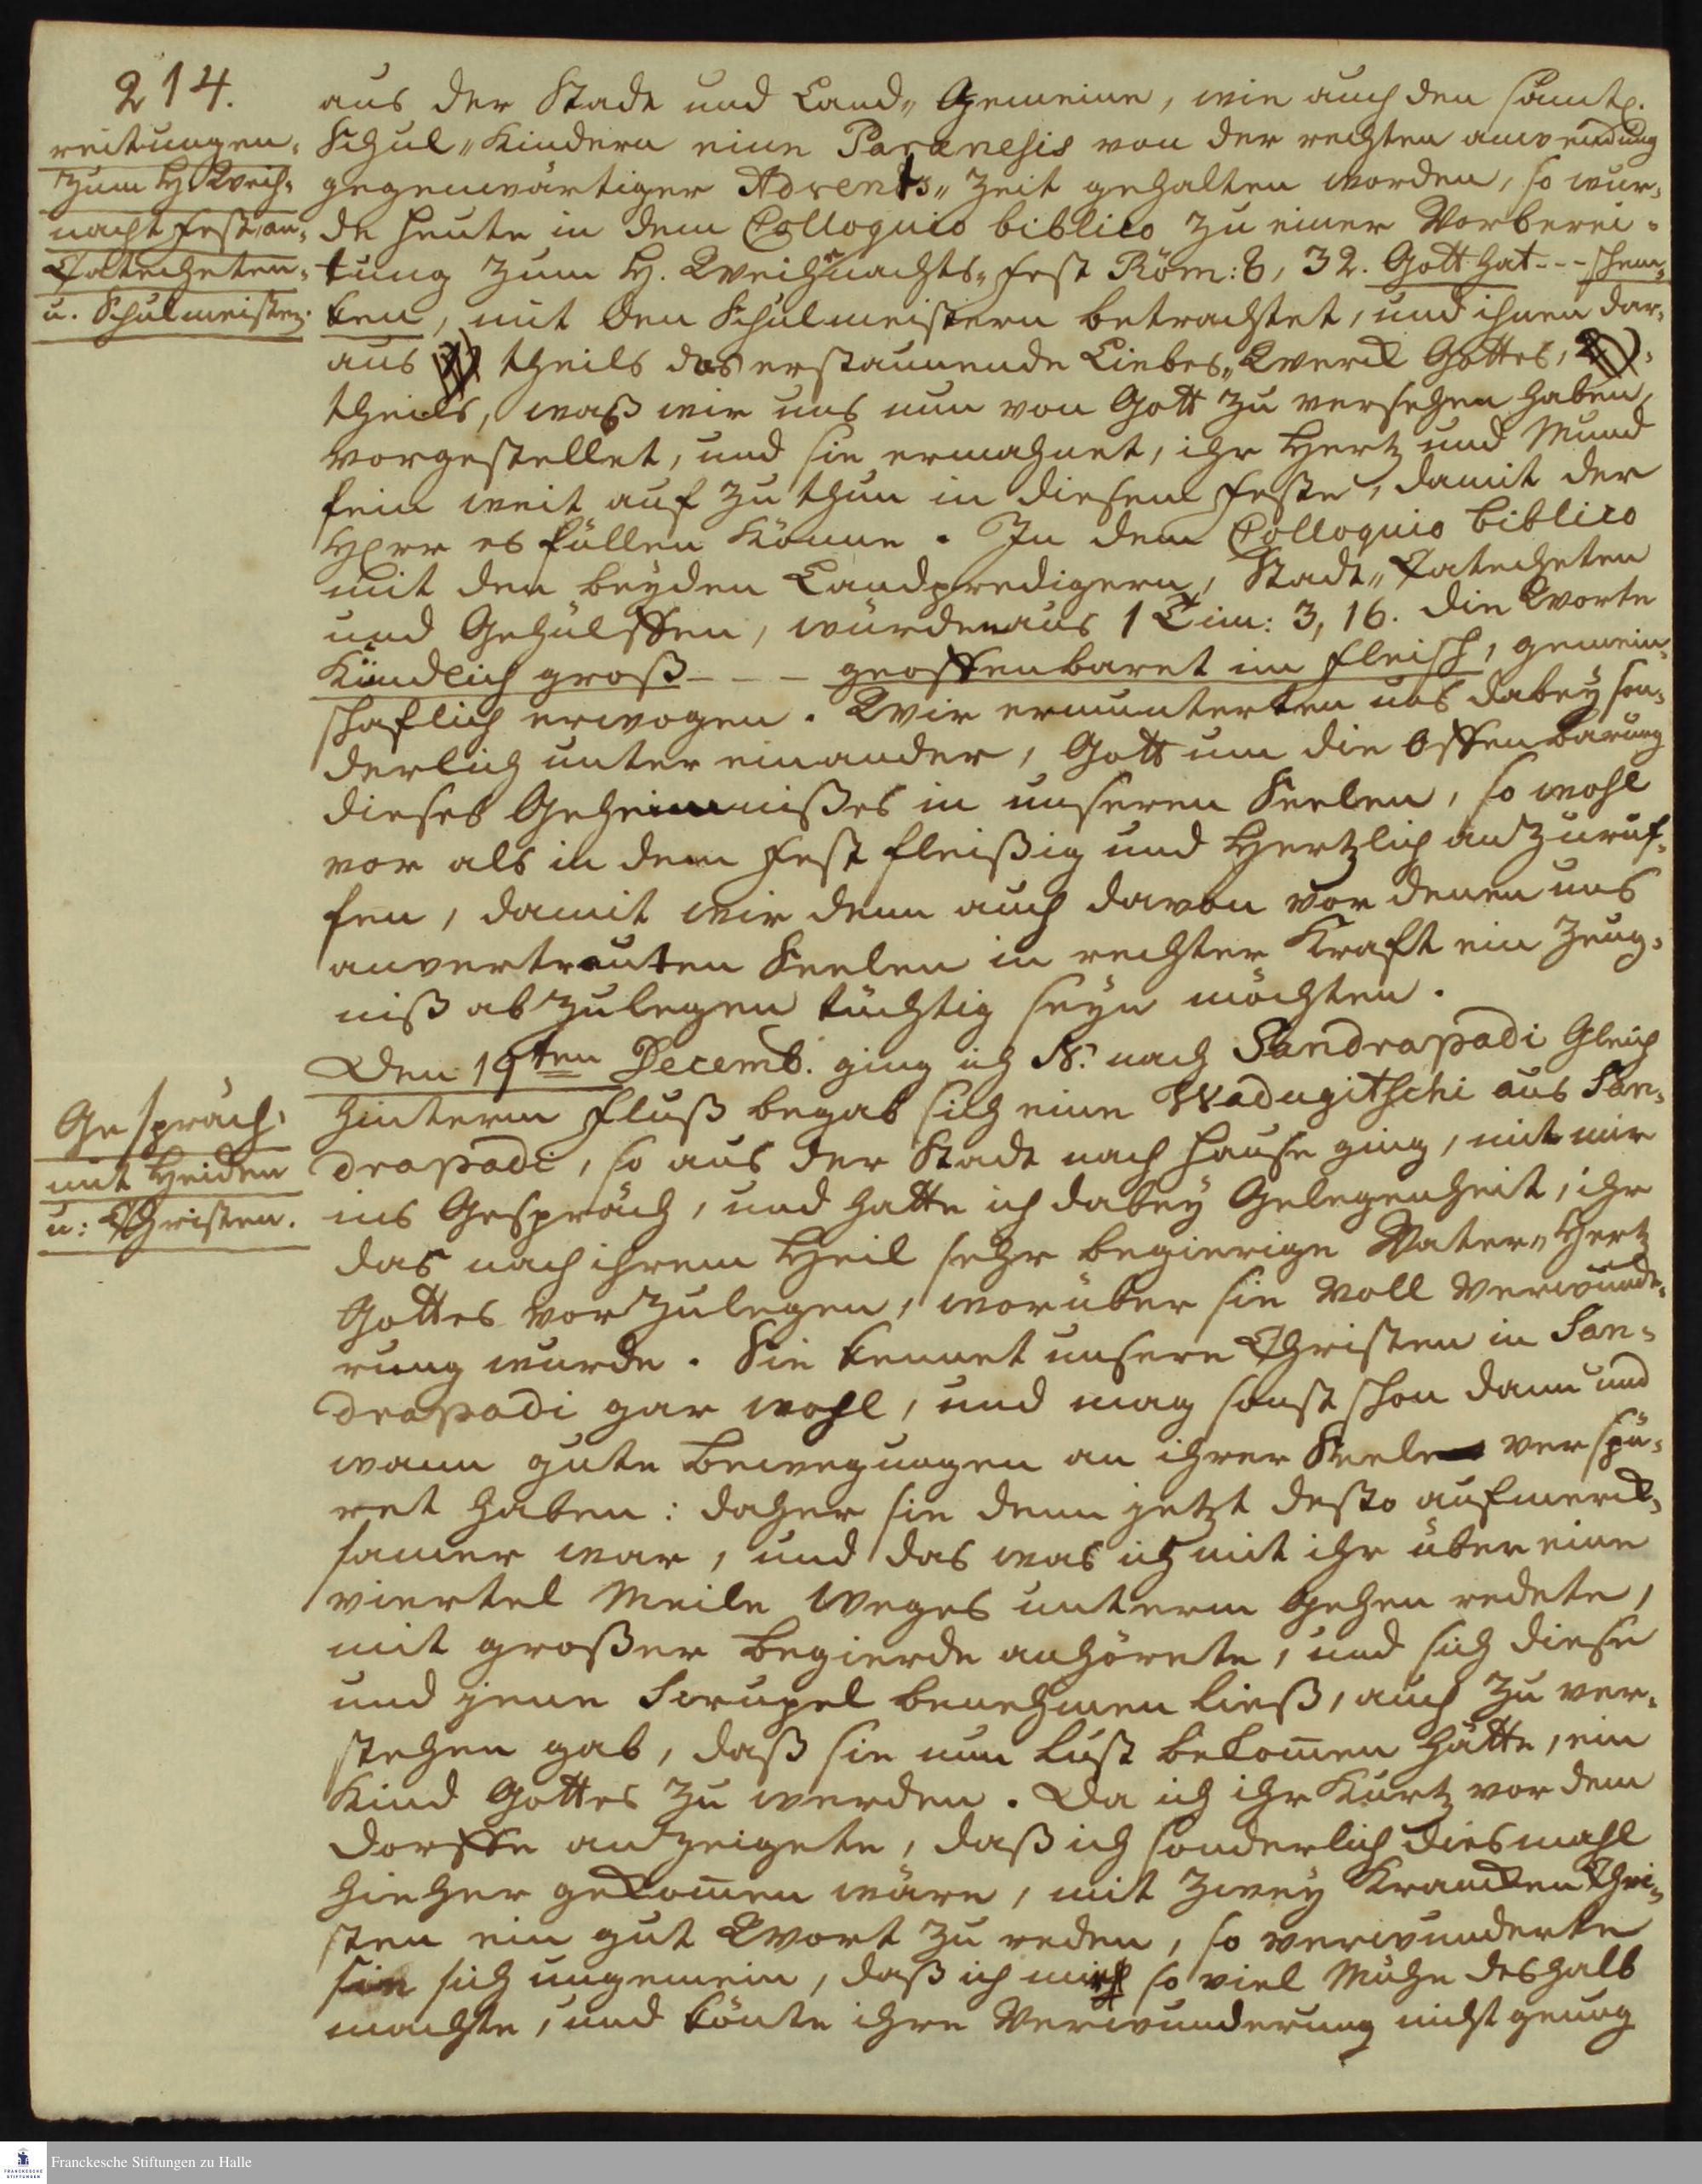 214.
reitungen
zum H. Weih-
nacht fest, an
Catecheten
u. Schulmeister.
aus der Stadt und Land-Gemeine, wie auch den sämtl.
Schul-Kindern eine Paraenesis von der rechten anwendung
gegenwärtiger Advents-Zeit gehalten worden, so wur-
de heute in dem Colloquio biblico zu einer Vorberei-
tung zum H. Weihnachts-fest Röm: 8, 32. Gott hat --- schen-
ken, mit den Schulmeistern betrachtet, und ihnen dar-
aus theils das erstaunende Liebes-Werck Gottes,
theils, waß wir uns nun von Gott zu versehen haben,
vorgestellet, und sie ermahnet, ihr Hertz und Mund
fein weit auf zu thun in diesem feste, damit der
HErr es füllen könne. In dem Colloquio biblico
mit den beyden Landpredigern, Stadt-Catecheten
und Gehülffen, würden aus 1 Tim: 3, 16. die Worte
Kündlich groß - - - geoffenbaret im fleisch, gemein-
schaftlich erwogen. Wir ermunterten uns dabey son-
derlich unter einander, Gott um die Offenbarung
dieses Geheimnißes in unseren Seelen, so wohl
vor als in dem fest fleißig und Hertzlich anzuruf-
fen, damit wir denn auch davon vor denen uns
anvertrauten Seelen in rechter Kraft ein Zeug-
niß abzulegen tüchtig seyn möchten.
Den 19ten Decemb. ging ich N. nach Sandrapadi Gleich
Gespräch
mit Heiden
u: Christen.
hinterm Fluß begab sich eine Wadugitschi aus San-
drapadi, so aus der Stadt nach Hause ging, mit mir
ins Gespräch, und hatte ich dabey Gelegenheit, ihr
das nach ihrem Heil sehr begierige Vater-Hertz
Gottes vorzulegen, worüber sie voll Verwunde-
rung wurde. Sie kennet unsere Christen in San-
drapadi gar wohl, und mag sonst schon dann und
wann gute Bewegungen an ihrer Seele verspü-
ret haben: daher sie denn jetzt desto aufmerck-
samer war, und das was ich mit ihr über eine
viertel Meile Weges unterm Gehen redete,
mit großer Begierde anhörete, und sich diese
und jene Scrupel benehmen ließ, auch zu ver-
stehen gab, daß sie nun Lust bekom̄en hätte, ein
Kind Gottes zu werden. Da ich ihr Kurtz vor dem
Dorffe anzeigete, daß ich sonderlich diesmahl
hieher gekom̄en wäre, mit zwey Krancken Chri-
sten ein gut Wort zu reden, so verwunderte
sie sich ungemein, daß ich mich so viel Mühe deshalb
machte, und könte ihre Verwunderung nicht genung
Franckesche Stiftungen zu Halle